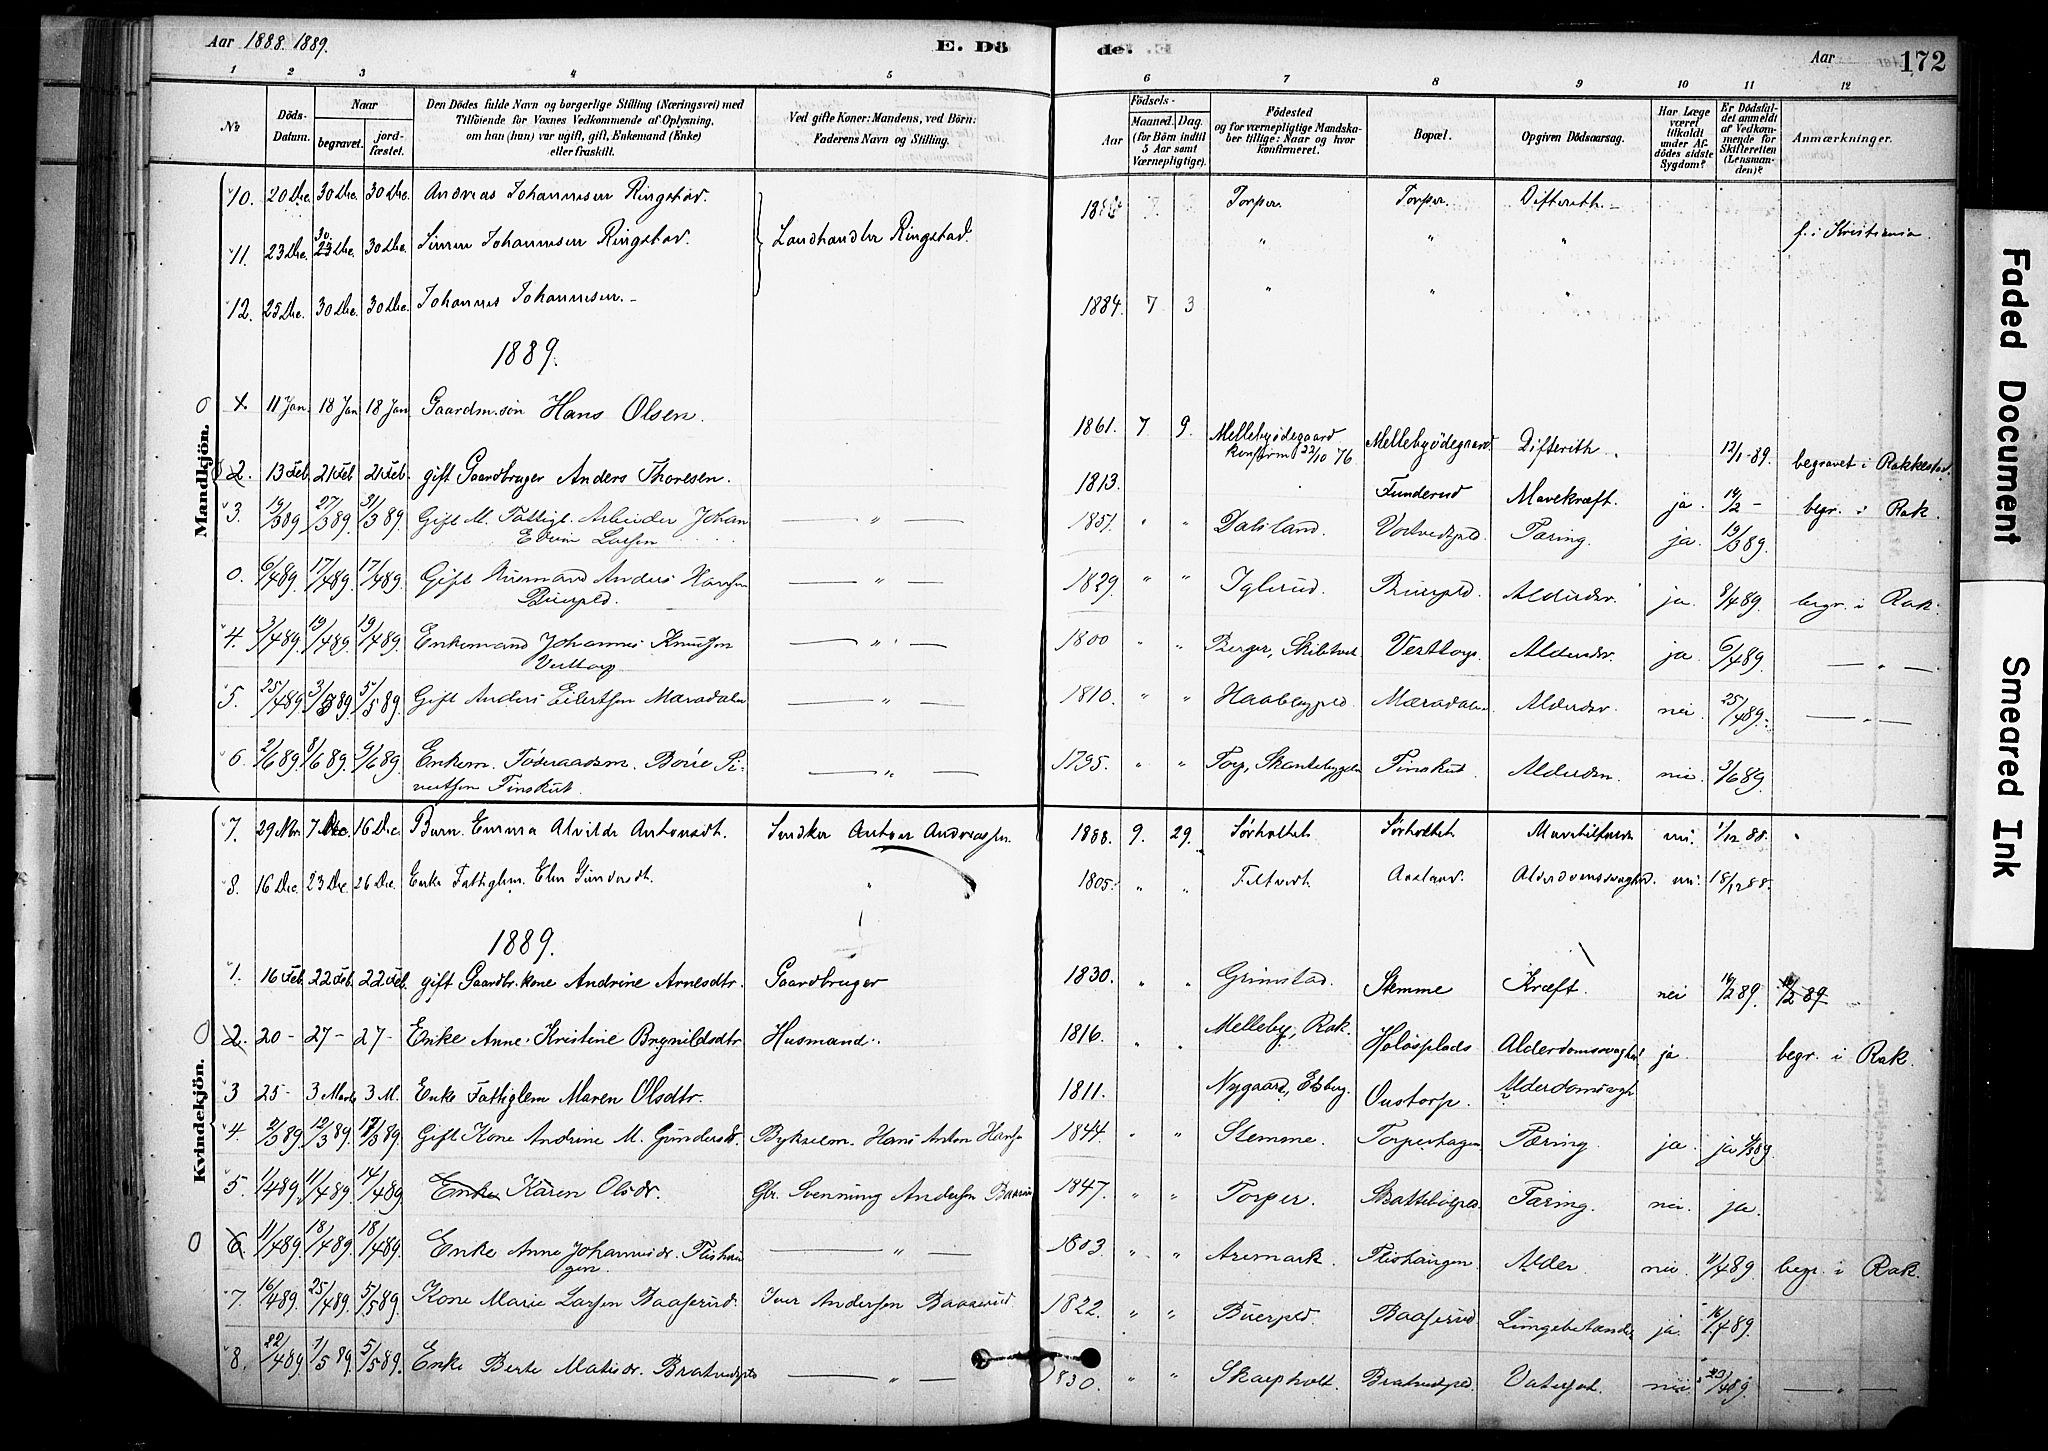 Aar 1888. 1889.
E. Dö
de.
Aar
172
1 2 3 4 5 6 7 8 9 10 11 12
No
Döds-Datum.
Naar
begravet.
jord-fæstet.
Den Dödes fulde Navn og borgerlige Stilling (Næringsvei) med
Tilföiende for Voxnes Vedkommende af Oplysning,
om han (hun) var ugift, gift, Enkemand (Enke)
eller fraskilt.
Ved gifte Koner: Mandens, ved Börn:
Faderens Navn og Stilling.
Födsels-
Aar
Maaned.
Dag.
(for Börn indtil
5 Aar samt
Værnepligtige).
Födested
og for værnepligtige Mandska-
ber tillige: Naar og hvor
konfirmeret.
Bopæl.
Opgiven Dödsaarsag.
Har Læge
været
tilkaldt
under Af-
dödes sidste
Sygdom?
Er Dödsfal-
det anmeldt
af Vedkom-
mende for
Skifteretten
(Lensman-
den)?
Anmærkninger.
Mandkjön.
10. 20 Dec. 30 Dec. 30 Dec. Andreas Johannesen Ringstad. Torper. Torper. Difterith.
11. 23 Dec. 30 Dec. 30 Dec. Simen Johannesen Ringstad. Landhandler Ringstad. " " " f. i Kristiania.
12. 25 Dec. 30 Dec. 30 Dec. Johannes Johannesen. 1884. 7 3 " " "
1889.
11 Jan. 18 Jan 18 Jan Gaardm.søn Hans Olsen. 1861. 7 9. Mellebyødegaard konfirm 22/10 76 Mellebyødegaard. Difterith. 12/1-89. begravet i Rakkestad.
2. 13 Feb. 21 Feb 21 Feb. gift Gaardbruger Anders Thoresen. 1813. Funderud Mavekræft. ja. 14/2 - begr. i Rak.
3. 19/3 89 27/3 89. 31/3 89. Gift M. Fattigl. Arbeider Johan Edvin Larsen — " — 1851. " " Dalsland. Tæring. ja. 19/3 89.
0. 6/4 89. 17/4 89. 17/4 89. Gift Husmand Anders Hansen Buerpld. — " — 1829. " " Iglerud. Buerpld. Aldersv. ja. 8/4 89. begr. i Rak.
4. 3/4 89. 19/4 89. 19/4 89. Enkemand Johannes Knutsen Vesttorp — " — 1800 " " Berger, Skibtvet Vesttorp. Aldersv. ja. 6/4 89. — " —
5. 25/4 89. 3/5 89 5/5 89. Gift Anders Eilertsen Mæradalen — " — 1810. " " Haabypld. Mæradalen. Aldersv. nei. 25/4 89. — " —
6. 2/6 89. 8/6 89. 9/6 89. Enkem. Føderaadsm. Börre Si-
vertsen Finskut. — " — 1795. " " Torp, Finskut. nei. 3/6 89.
Kvindekjön.
7. 29 Nbr. 7 Dec. 16 Dec. Barn Emma Alvilde Antonsdt. Snedker Anton Andreassen. 1888. 9. 29. Sørholtet. Sørholtet. nei. 1/12 88.
8. 16 Dec. 23 Dec 26 Dec. Enke Fattiglem. Elen Gundersdt. " 1805. " " Filtvedt. Alderdomssvaghed. nei. 18/12 88.
1889.
1. 16 Feb. 22 Feb. 22 Feb. gift Gaardbr.kone Andrine Arnesdtr. Gaardbruger 1830. " " Grimstad. Stemme Kræft. nei 16/2 89.
2. 20 - 27 - 27 - Enke Anne Kristine Brynildsdtr. Husmand. 1816. " " Melleby, Rak. Holøsplads Alderdomssvaghed ja. begr. i Rak.
3 25 - 3 Marts 3 M. Enke Fattiglem Maren Olsdtr. 1811. Nygaard, Eidsberg. Oustorp. Alderdomsvagh
4. 2/3 89. 12/3 89. 17/3 89. Gift Kone Andrine M. Gundersdr. Bykselm. Hans Anton Hansen 1844. " " Stemme. Torperhagen. Tæring. ja ja 4/3 89.
5. 1/4 89. 11/4 89. 14/4 89. Karen Olsdr. Gbr. Svenning Andersen Baaserud 1847. " " Torper. Tæring. nei. ja.
6. 11/4 89. 18/4 89. 18/4 89. Enke Anne Johannesdr. Flishau-
gen — " — 1803. " " Aremark. Flishaugen. Alder. nei. 11/4 89. begr. i Rak.
7. 16/4 89. 25/4 89. 5/5 89. Kone Marie Larsen Baaserud. Iver Andersen Baaserud. 1822. " " Buerpld. Baaserud Lungebetændelse ja. 16/4 89.
8. 22/4 89. 1/5 89. 5/5 89. Enke Berte Matisdr. Bratvedpld — " — 1830. " " Skarpholt. Bratvedpld. Vatersot. nei — " —
Faded Document
Smeared Ink